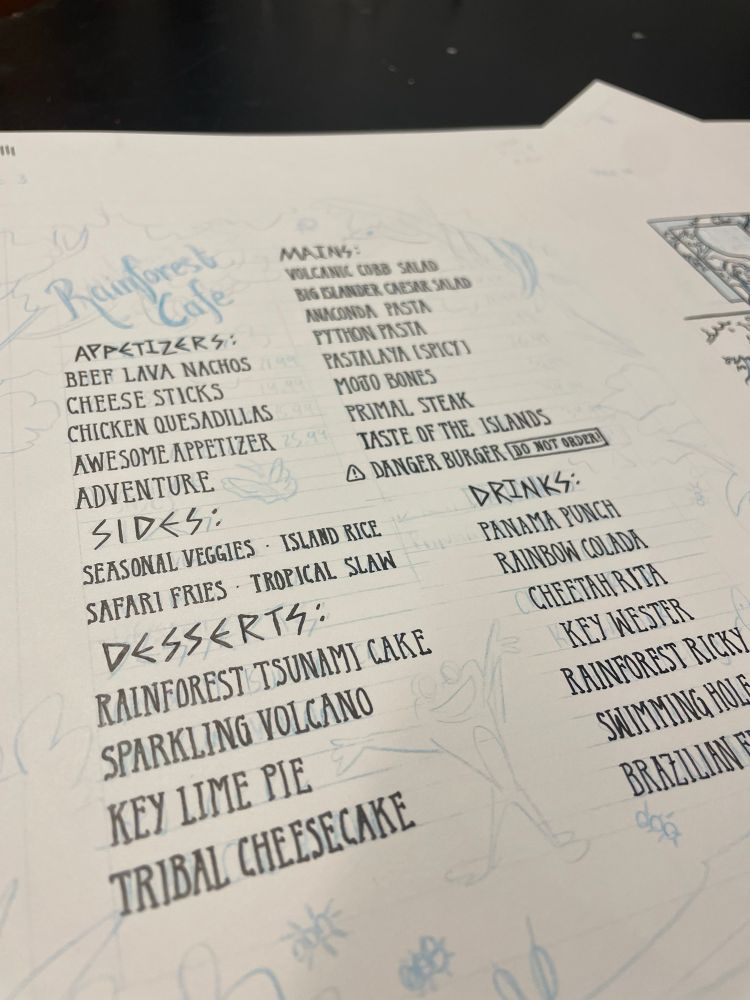 Rainforest
Cafe
APPETIZERS:
BEEF LAVA NACHOS
CHEESE STICKS
CHICKEN QUESADILLAS
AWESOME APPETIZER 25.99
ADVENTURE
SIDES:
SEASONAL VEGGIES · ISLAND RICE
SAFARI FRIES · TROPICAL SLAW
DESSERTS:
RAINFOREST TSUNAMI CAKE
SPARKLING VOLCANO
KEY LIME PIE
TRIBAL CHEESECAKE
MAINS:
VOLCANIC COBB SALAD
BIG ISLANDER CAESAR SALAD
ANACONDA PASTA
PYTHON PASTA
PASTALAYA (SPICY)
MOJO BONES
PRIMAL STEAK
TASTE OF THE ISLANDS
DANGER BURGER DO NOT ORDER!
DRINKS:
PANAMA PUNCH
RAINBOW COLADA
CHEETAH RITA
KEY WESTER
RAINFOREST RICKY
SWIMMING HOLE
BRAZILIAN